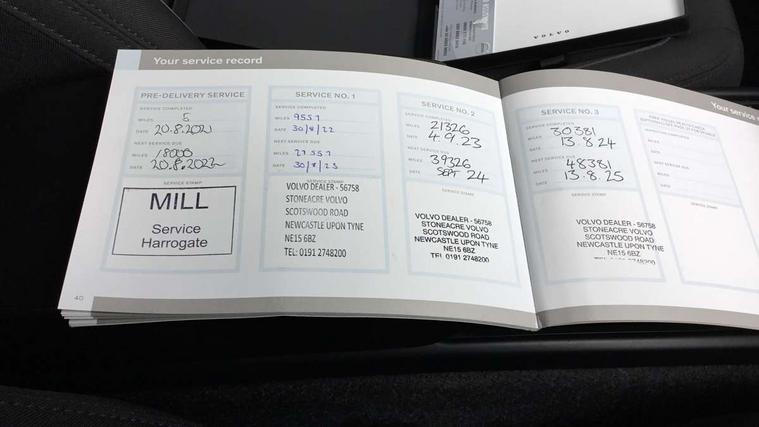 VOLVO
Your service record
PRE-DELIVERY SERVICE
SERVICE COMPLETED
MILES 5
DATE 20.8.2021
NEXT SERVICE DUE
MILES 18000
DATE 20.8.2022
SERVICE STAMP
MILL
Service
Harrogate
40
SERVICE NO. 1
SERVICE COMPLETED
MILES 9557
DATE 30/8/22
NEXT SERVICE DUE
MILES 27557
DATE 30/8/23
SERVICE STAMP
VOLVO DEALER - 56758
STONEACRE VOLVO
SCOTSWOOD ROAD
NEWCASTLE UPON TYNE
NE15 6BZ
TEL: 0191 2748200
SERVICE NO. 2
SERVICE COMPLETED
MILES 21326
DATE 4.9.23
NEXT SERVICE DUE
MILES 39326
DATE SEPT 24
SERVICE STAMP
VOLVO DEALER - 56758
STONEACRE VOLVO
SCOTSWOOD ROAD
NEWCASTLE UPON TYNE
NE15 6BZ
TEL 0191 2748200
SERVICE NO. 3
SERVICE COMPLETED
MILES 30381
DATE 13.8.24
NEXT SERVICE DUE
MILES 48381
DATE 13.8.25
SERVICE STAMP
VOLVO DEALER - 56758
STONEACRE VOLVO
SCOTSWOOD ROAD
NEWCASTLE UPON TYNE
NE15 6BZ
TEL 0191 2748200
Your service
MILES
DATE
NEXT SERVICE DUE
MILES
DATE
SERVICE STAMP